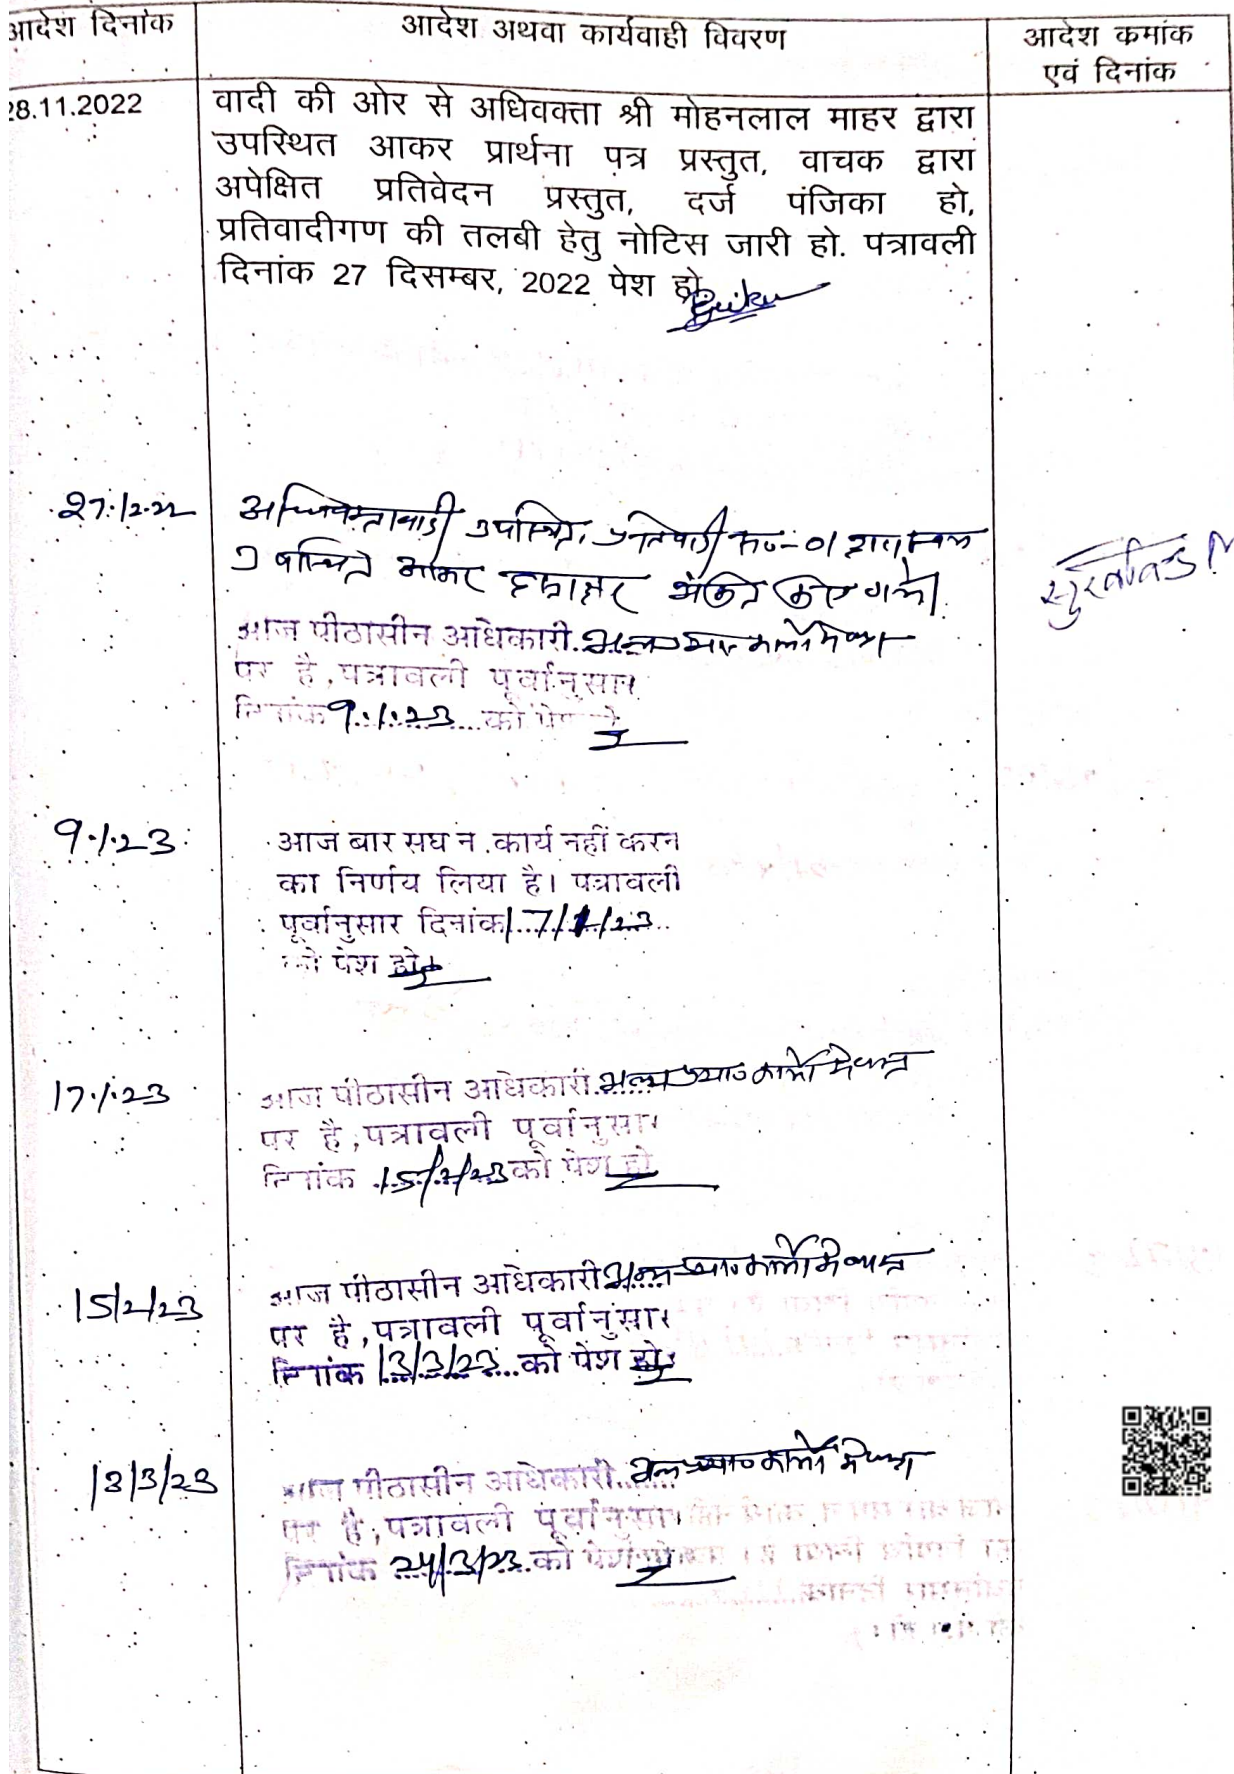 आदेश दिनांक
आदेश अथवा कार्यवाही विवरण
आदेश कमांक
एवं दिनांक
28.11.2022
वादी की ओर से अधिवक्ता श्री मोहनलाल माहर द्वारा
उपस्थित आकर प्रार्थना पत्र प्रस्तुत, वाचक द्वारा
अपेक्षित प्रतिवेदन प्रस्तुत, दर्ज पंजिका हो,
प्रतिवादीगण की तलबी हेतु नोटिस जारी हो. पत्रावली
दिनांक 27 दिसम्बर, 2022 पेश हो
27.12.22
उपस्थित, प्रतिवादी
उपस्थित आकर हस्ताक्षर अंकित किए गये।
आज पीठासीन अधिकारी
पर है, पत्रावली पूर्वानुसार
दिनांक 9.1.23 को पेश हो
9.1.23
आज बार संघ न कार्य नहीं करन
का निर्णय लिया है। पत्रावली
पूर्वानुसार दिनांक 17/1/23
को पेश हो
17.1.23
आज पीठासीन अधिकारी
पर है, पत्रावली पूर्वानुसार
दिनांक 15/2/23 को पेश हो
15/2/23
आज पीठासीन अधिकारी
पर है, पत्रावली पूर्वानुसार
दिनांक 13/3/23 को पेश हो
13/3/23
आज पीठासीन अधिकारी
पर है, पत्रावली पूर्वानुसार
दिनांक 24/3/23 को पेश हो